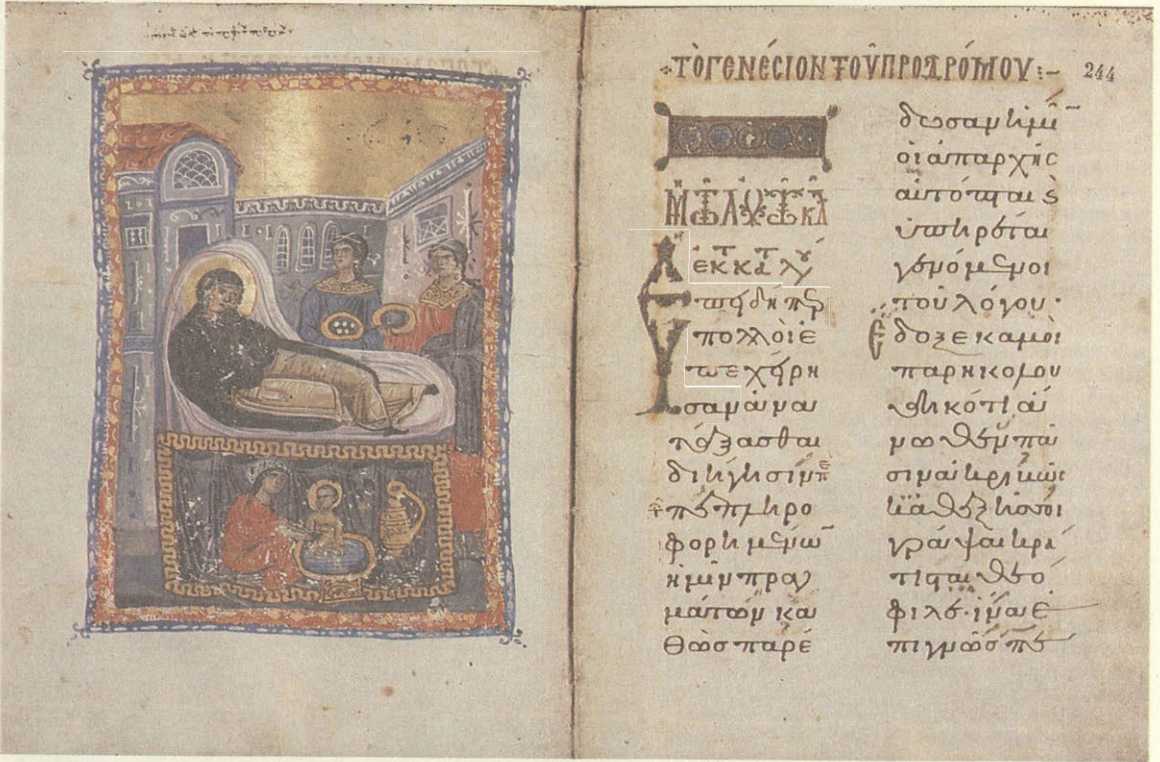 ΤΟ ΓΕΝΕCΙΟΝ ΤΟΥ ΠΡΟΔΡΟΜΟΥ:~ 244
Ἐπειδήπερ
πολλοὶ ἐ
πεχείρη
σαν ἀνα
τάξασθαι
διήγησιν
πεπληρο
φορημένω̄
ἡμῖν πραγ
μάτων κα
θὼς παρέ
δωσαν ἡμῖ̄
οἱ ἀπαρχῆς
αὐτόπται ϛ
ὑπηρέται
γενόμενοι
τοῦ λόγου·
Ἔδοξε καμοὶ
παρηκολου
θηκότι ἄ
νωθεν πᾶ
σιν ἀκριβῶς
καθεξῆς σοι
γράψαι κρά
τιστε θεό
φιλε· ἵνα ἐ
πιγνῶς πε